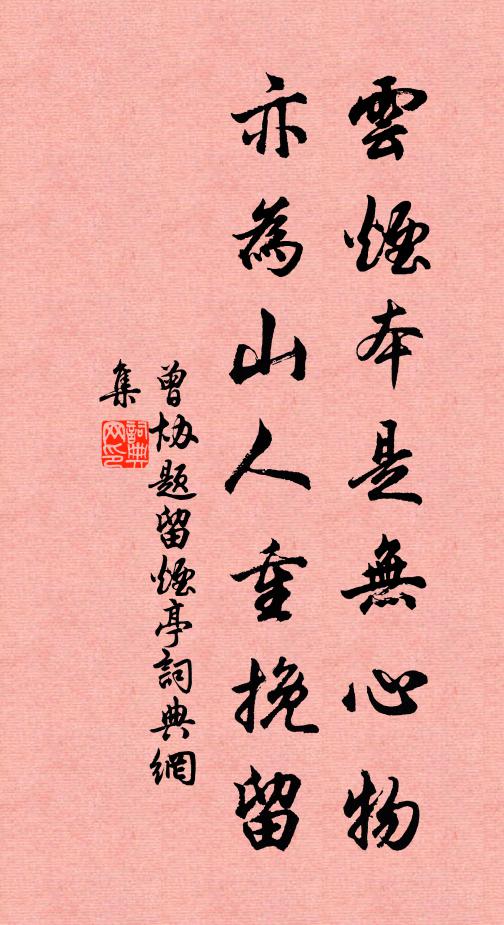 雲煙本是無心物
亦為山人重挽留
曾協題留煙亭詞典網
集
詞典
网印